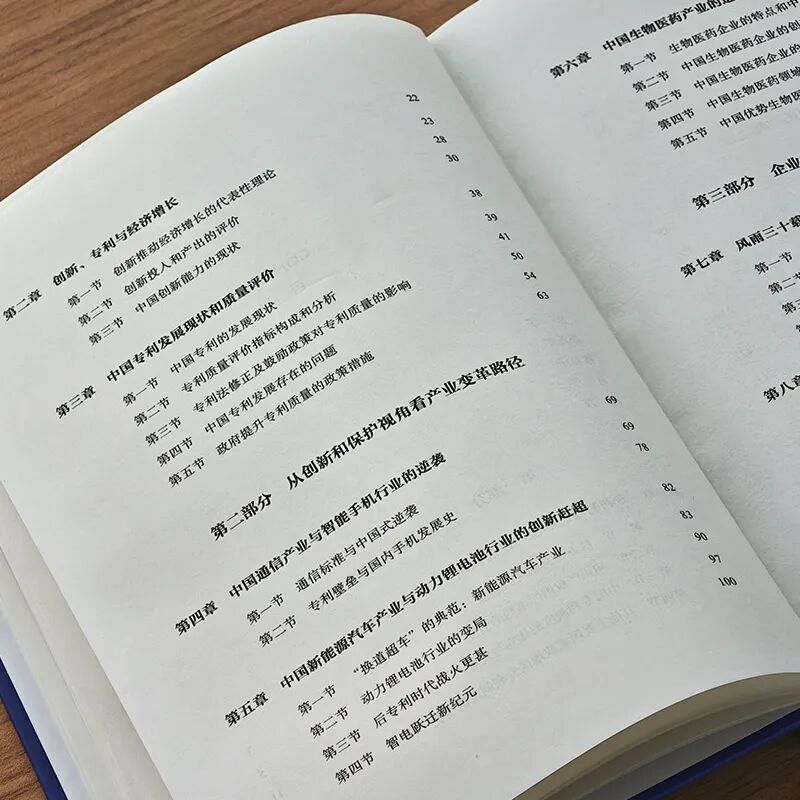 第二章 创新、专利与经济增长 22
第一节 创新推动经济增长的代表性理论 23
第二节 创新投入和产出的评价 28
第三节 中国创新能力的现状 30
第三章 中国专利发展现状和质量评价 38
第一节 中国专利的发展现状 39
第二节 专利质量评价指标构成和分析 41
第三节 专利法修正及鼓励政策对专利质量的影响 50
第四节 中国专利发展存在的问题 54
第五节 政府提升专利质量的政策措施 63
第二部分 从创新和保护视角看产业变革路径
第四章 中国通信产业与智能手机行业的逆袭 69
第一节 通信标准与中国式逆袭 69
第二节 专利壁垒与国内手机发展史 78
第五章 中国新能源汽车产业与动力锂电池行业的创新赶超 82
第一节 “换道超车”的典范：新能源汽车产业 83
第二节 动力锂电池行业的变局 90
第三节 后专利时代战火更甚 97
第四节 智电跃迁新纪元 100
第六章 中国生物医药产业的
第一节 生物医药企业的特点和中
第二节 中国生物医药企业的创
第三节 中国生物医药企业的
第四节 中国生物医药领域
第五节 中国优势生物医
第三部分 企业
第七章 风雨三十载
第一节
第二
第三
第
第八章